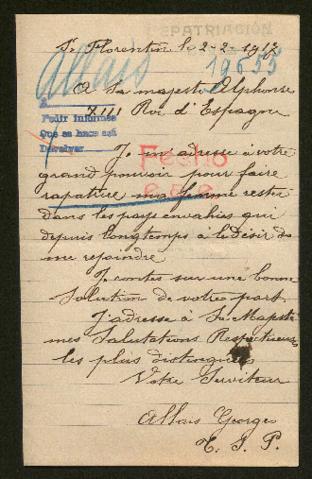 REPATRIACIÓN
St Florentin le 2-2-1917
Allais 19655
A Sa majesté Alphonse
XIII Roi d'Espagne
A
Pedir informes
Que se hace acá
Devolver
Fecho
Je m'adresse à votre
grand pouvoir pour faire
rapatrier ma femme restée
dans les pays envahies qui
depuis longtemps à le désir de
me rejoindre
Je comtes sur une bonne
Solution de votre part
J'adresse à Sa Majesté
mes Salutations Respectueuses
les plus distinguées
Votre Serviteur
Allais Georges